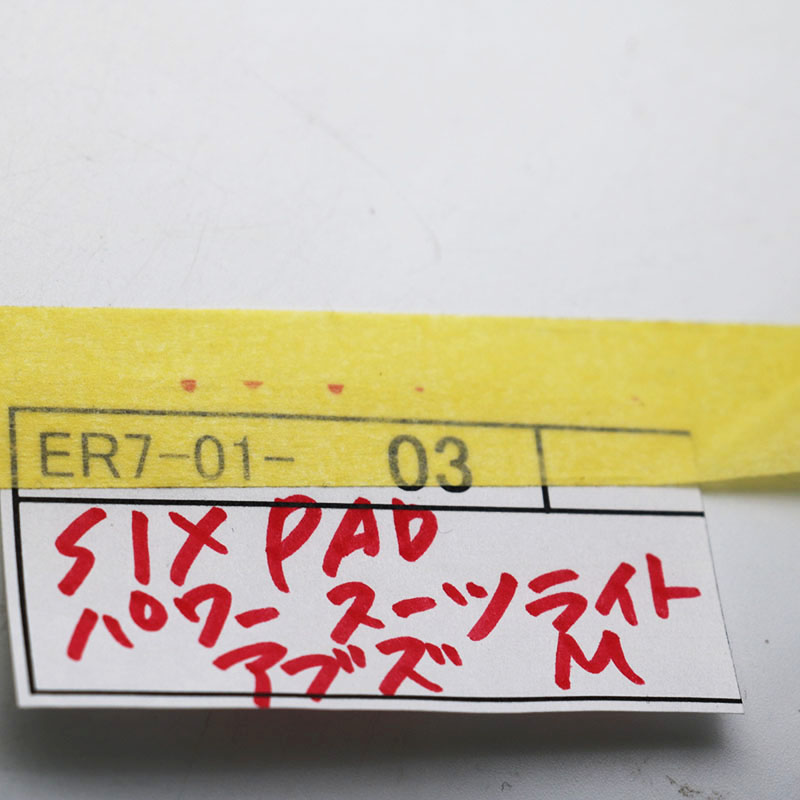 ER7-01- 03
SIX PAD
パワースーツライト
アブズ M